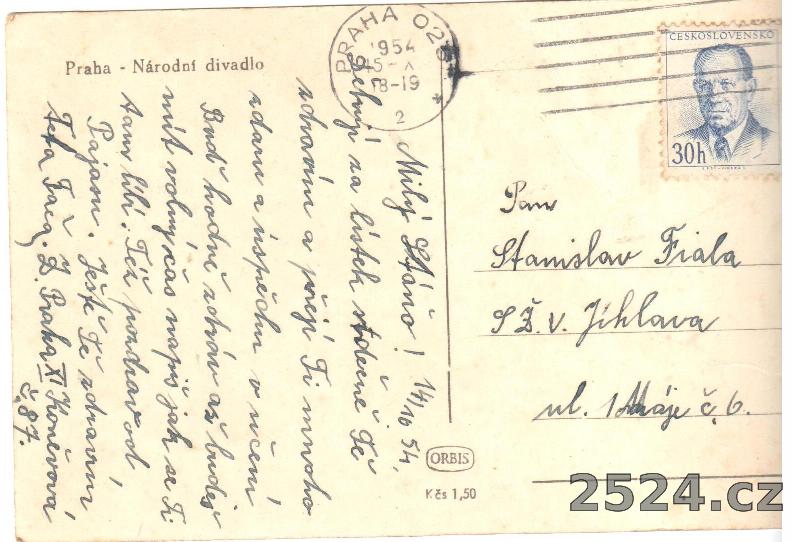 Praha - Národní divadlo
PRAHA 025
1954
15-X
18-19
2
ČESKOSLOVENSKO
30h
Milý Stáňo! 14/10 54.
Děkuji za lístek srdečně Tě
zdravím a přeji Ti mnoho
zdaru a úspěchu v učení
Buď hodně zdráv až budeš
mít volný čas napiš jak se Ti
tam líbí. Též pozdrav od
Pajam. Ještě Tě zdraví
Teta Praha XI Koněvová
č. 87.
Pan
Stanislav Fiala
SŽ. v. Jihlava
ul. 1 Máje č. 6.
ORBIS
Kčs 1,50
2524.cz